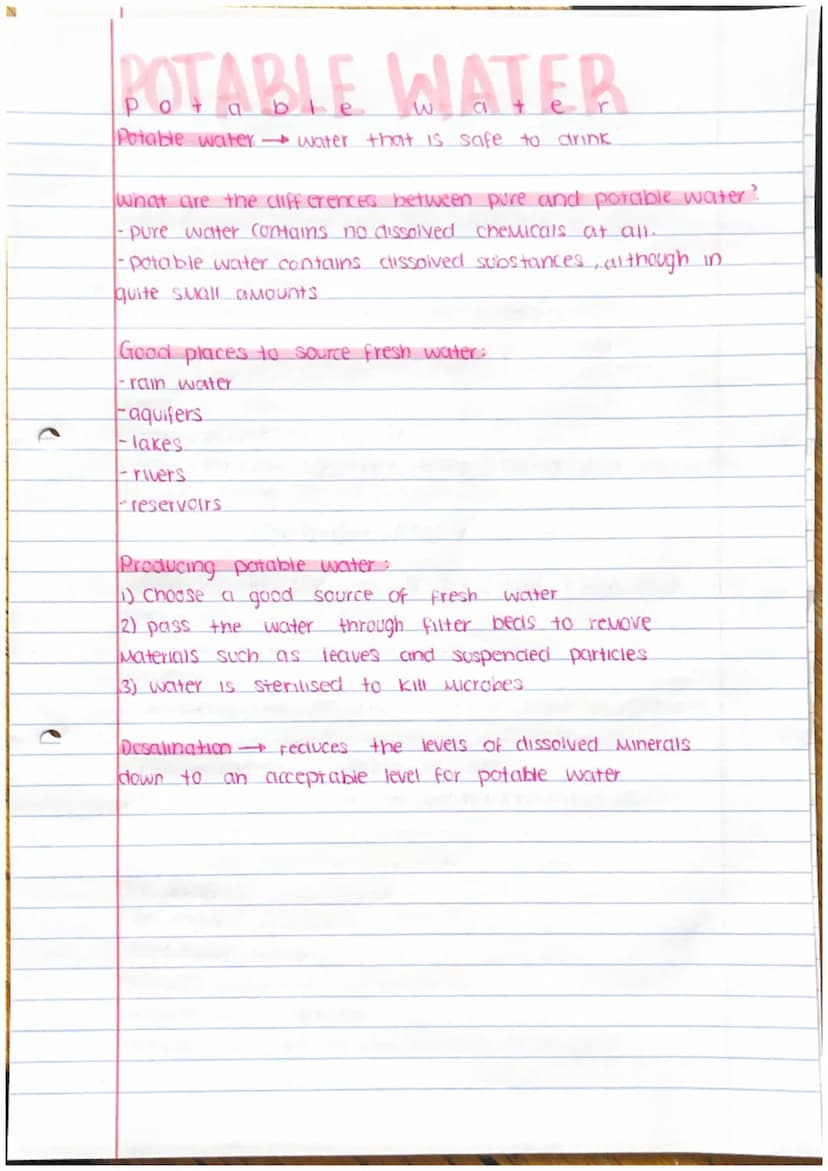 POTABLE WATER
potable water
Potable water → water that is safe to drink
What are the differences between pure and potable water?
- pure water contains no dissolved chemicals at all.
- potable water contains dissolved substances, although in
quite small amounts
Good places to source fresh water:
- rain water
- aquifers
- lakes
- rivers
- reservoirs
Producing potable water:
1) Choose a good source of fresh water
2) pass the water through filter beds to remove
materials such as leaves and suspended particles
3) water is sterilised to kill microbes
Desalination → reduces the levels of dissolved minerals
down to an acceptable level for potable water